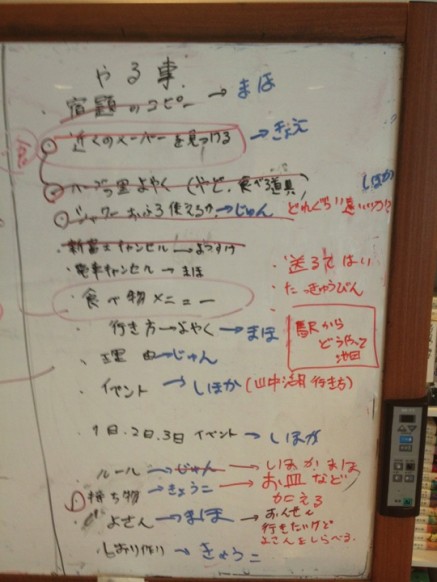 やる事
・宿題のコピー → まほ
近くのスーパーを見つける → きょえ
よやく (やど、食べる道具)
しほか
シャワー おふろ 使えるか → じゅん
新富士キャンセル → よっすけ
・電車キャンセル → まほ
・送る
・食べ物メニュー
・たっきゅうびん
・行き方 → よやく → まほ
駅から
どうやって
理由 → じゅん
イベント → しほか (山中湖 行き方)
1日.2日.3日 イベント → しほか
ルール → じゅん → しほか まほ
持ち物 → きょうこ → お皿など
加える
よさん → まほ → おんせん
行きたいけど
しらべる
しおり作り → きょうこ